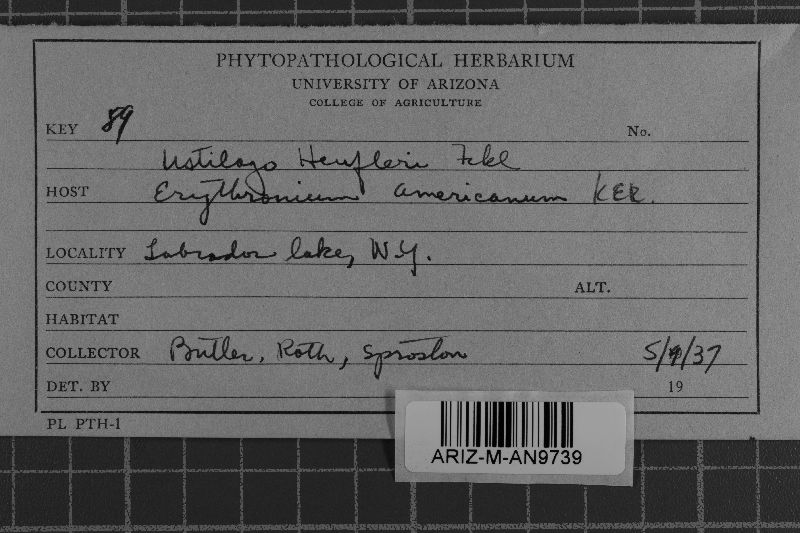 PHYTOPATHOLOGICAL HERBARIUM
UNIVERSITY OF ARIZONA
COLLEGE OF AGRICULTURE
KEY 89 No.
Ustilago Heufleri Fckl
HOST Erythronium americanum KER.
LOCALITY Labrador lake, N.Y.
COUNTY ALT.
HABITAT
COLLECTOR Butler, Roth, Sproston 5/9/37
DET. BY 19
PL PTH-1
ARIZ-M-AN9739